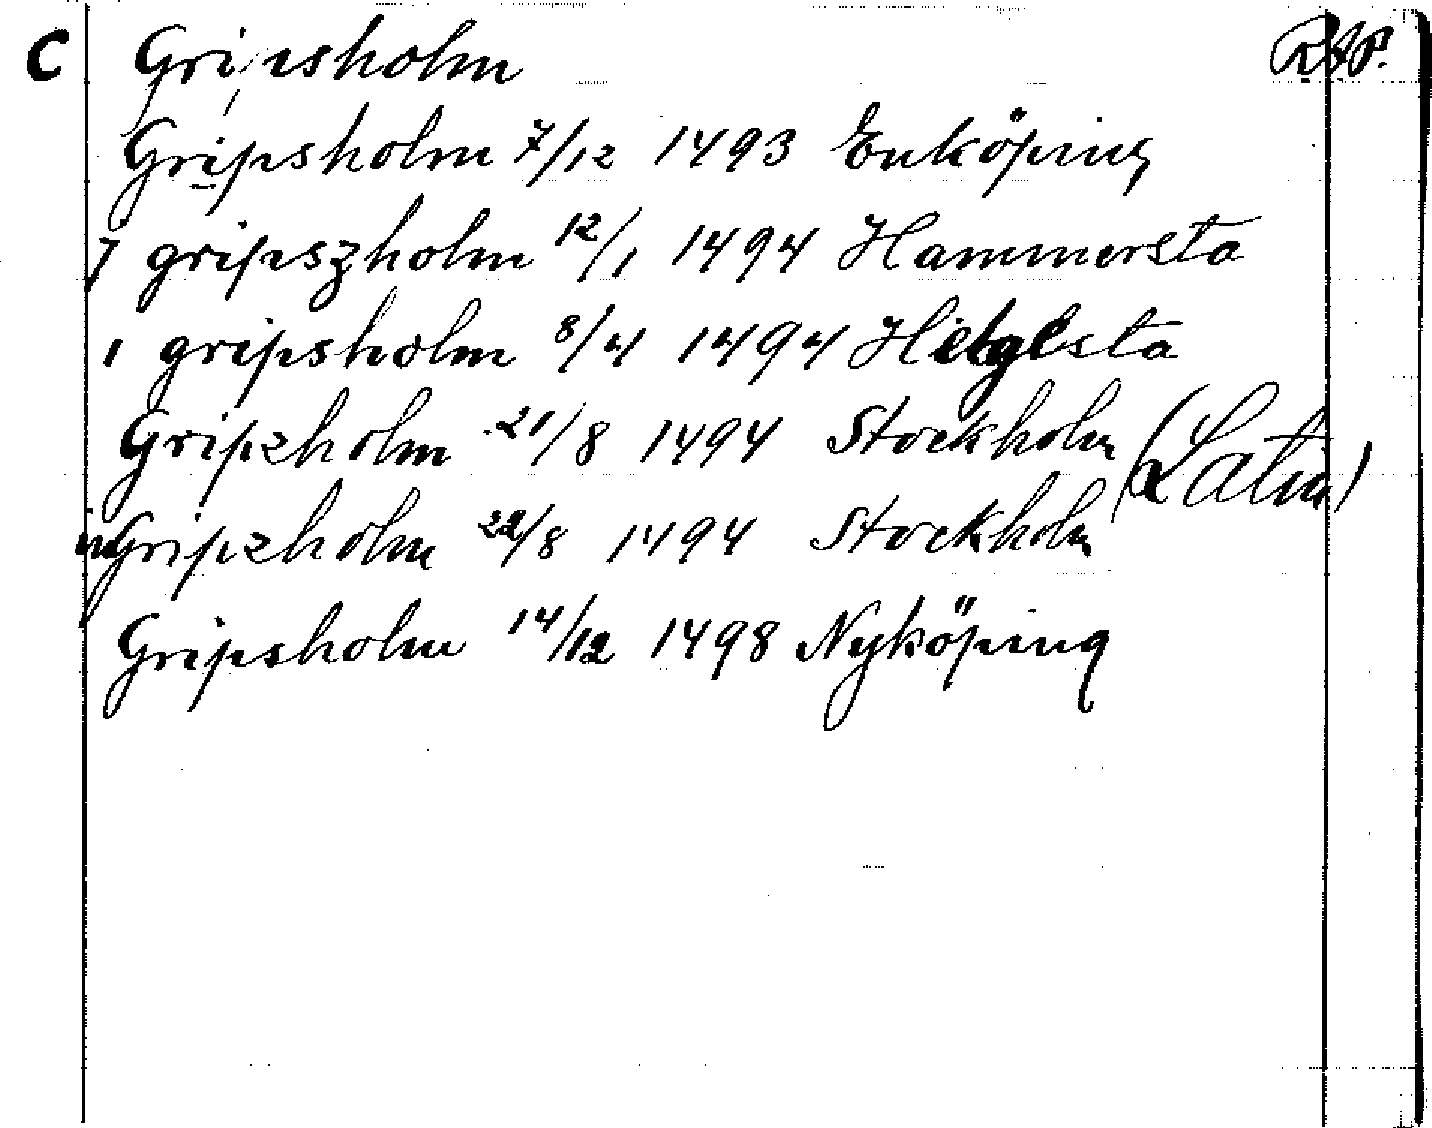 C Gripsholm RAP.
Gripsholm 7/12 1493 Enköping
J gripszholm 12/1 1494 Hammersta
i gripsholm 8/4 1494 Helgesta
Gripzholm 21/8 1494 Stockholm (Latin)
in Gripzholm 22/8 1494 Stockholm
Gripsholm 14/12 1498 Nyköping